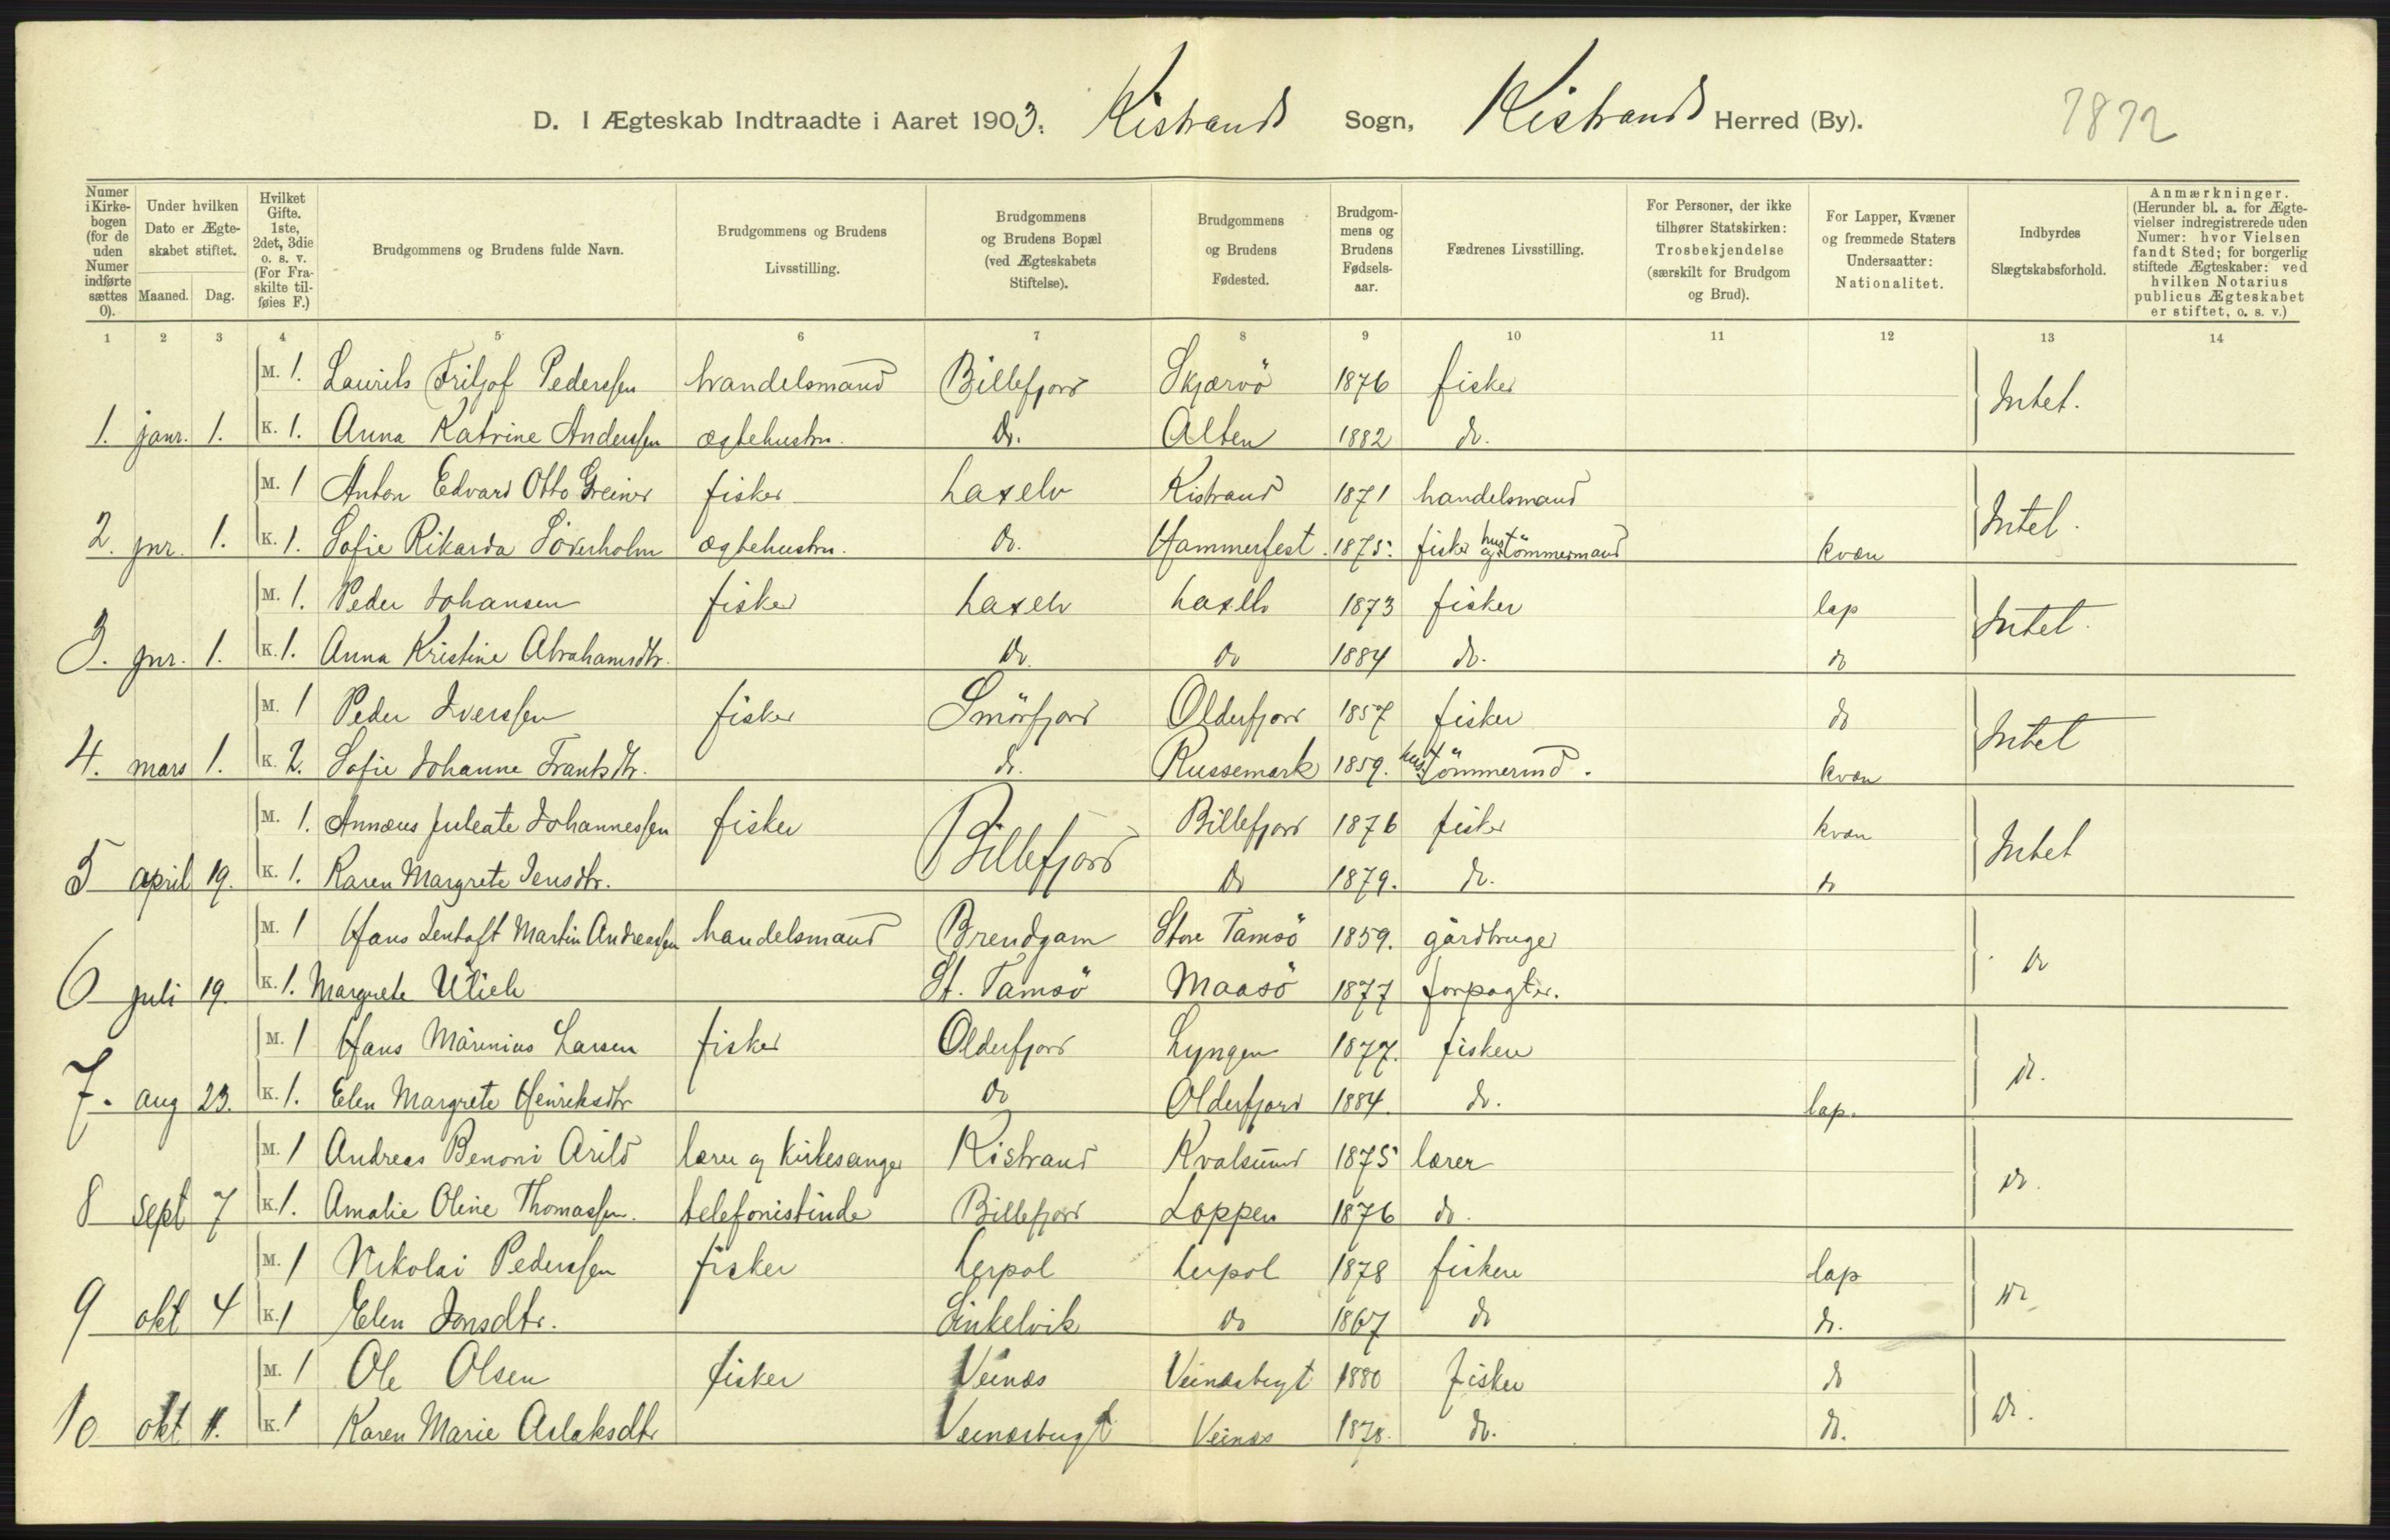 D. I Ægteskab Indtraadte i Aaret 1903. Kistrands Sogn, Kistrands Herred (By). 7872
Numer i Kirke-bogen (for de uden Numer indførte sættes 0). Under hvilken Dato er Ægte-skabet stiftet. Maaned. Dag. Hvilket Gifte. 1ste, 2det, 3die o. s. v. (For Fra-skilte til-føies F.) Brudgommens og Brudens fulde Navn. Brudgommens og Brudens Livsstilling. Brudgommens og Brudens Bopæl (ved Ægteskabets Stiftelse). Brudgommens og Brudens Fødested. Brudgom-mens og Brudens Fødsels-aar. Fædrenes Livsstilling. For Personer, der ikke tilhører Statskirken: Trosbekjendelse (særskilt for Brudgom og Brud). For Lapper, Kvæner og fremmede Staters Undersaatter: Nationalitet. Indbyrdes Slægtskabsforhold. Anmærkninger. (Herunder bl. a. for Ægte-vielser indregistrerede uden Numer: hvor Vielsen fandt Sted; for borgerlig stiftede Ægteskaber: ved hvilken Notarius publicus Ægteskabet er stiftet, o. s. v.)
1 2 3 4 5 6 7 8 9 10 11 12 13 14
M. 1. Laurits Fritjof Pederssen handelsmand Billefjord Skjærvö 1876 fisker Intet.
1. janr. 1. K. 1. Anna Katrine Anderssen ægtehustru. do. Alten 1882 do.
M. 1 Anton Edvard Otto Greiner fisker Laxelv Kistrand 1871 handelsmand Intet.
2. jnr. 1. K. 1. Sofie Rikarda Söderholm ægtehustru. do. Hammerfest. 1875. fisker og hustömmermand kvæn
M. 1. Peder Johansen fisker Laxelv Laxelv 1873 fisker lap Intet.
3. jnr. 1. K. 1. Anna Kristine Abrahamsdtr. do. do 1884 do. do
M. 1 Peder Iverssen fisker Smörfjord Olderfjord 1857 fisker do Intet
4. mars 1. K. 2. Sofie Johanne Frantsdtr. do. Russemark 1859. hustömmermd. kvæn
M. 1. Annæus Juleate Johannessen fisker Billefjord Billefjord 1876 fisker kvæn Intet
5 april 19. K. 1. Karen Margrete Jensdtr. do 1879. do. do
M. 1 Hans Lentoft Martin Andreassen handelsmand Brendgam Store Tamsö 1859. gårdbruger do
6 juli 19. K. 1. Margrete Ulich St. Tamsö Maasö 1877 forpagter.
M. 1 Hans Marinius Larsen fisker Olderfjord Lyngen 1877. fisker do.
7. aug 23. K. 1. Elen Margrete Henriksdtr do Olderfjord 1884. do. lap.
M. 1 Andreas Benoni Arild lærer og kirkesanger Kistrand Kvalsund 1875 lærer do.
8 sept 7 K. 1. Amalie Oline Thomassen. telefonistinde Billefjord Loppen 1876 do.
M. 1 Nikolai Pederssen fisker Lerpol Lerpol 1878 fisker lap do
9 okt 4 K. 1 Elen Jonsdtr. Sinkelvik do 1867 do do.
M. 1 Ole Olsen fisker Veinæs Veinæsbugt 1880 fisker do do.
10 okt 11. K. 1 Karen Marie Aslaksdtr Veinæsbugt Veinæs 1878. do. do.